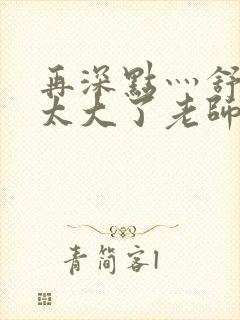 再深點灬舒
太大了老師
青簡客1